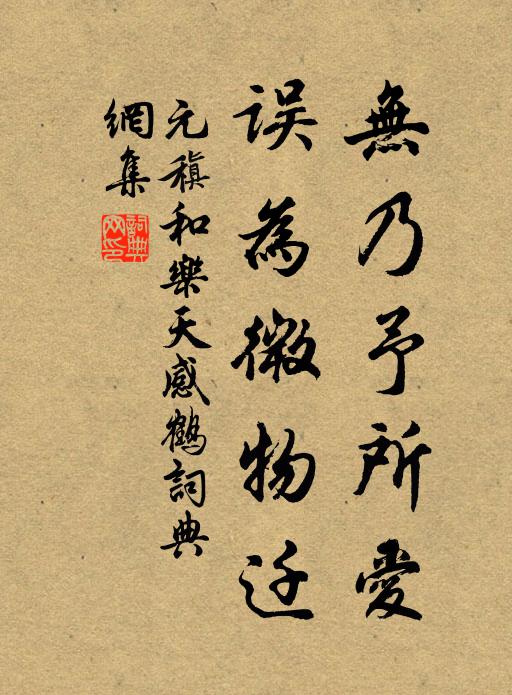 無乃予所愛
误為微物迁
元稹和樂天感鶴詞典
網集
詞典網印